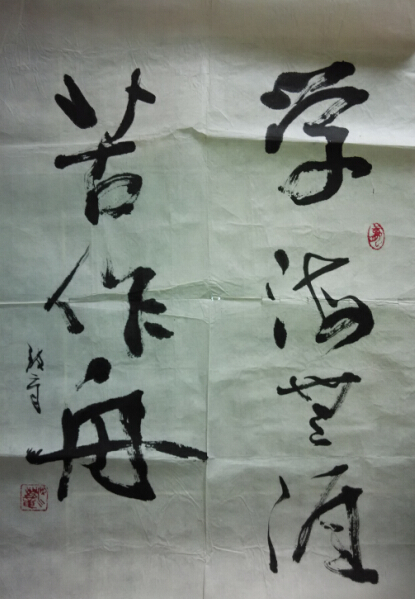 学海无涯
苦作舟